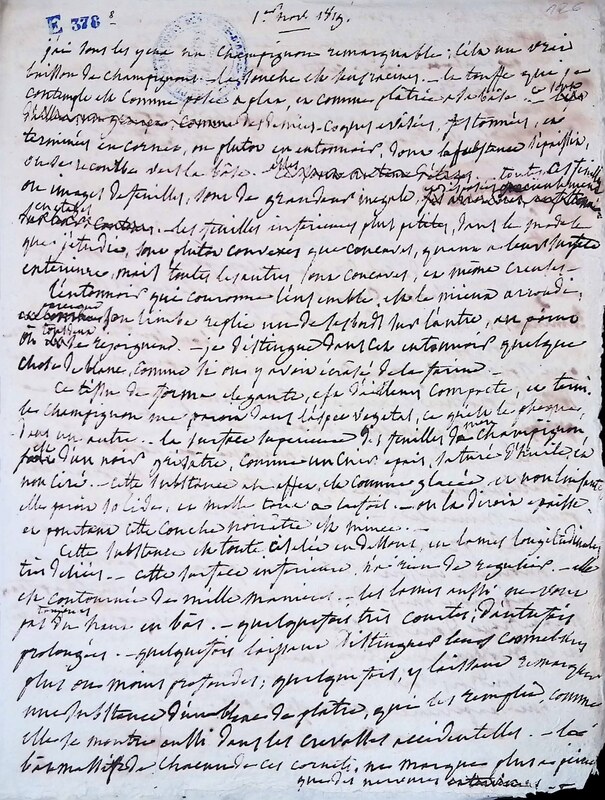 E 378 8
1er Nove 1819.
126
j'ai sous les yeux un champignon remarquable; cela un vrai
buisson de champignons - la souche est sans racines. - la touffe que je
contemple est comme posée a plan, et comme platrée a sa base
comme des demies-coques evasées, festonnées, et
terminées en cornet, ou plutot en entonnoir dont la substance s'épaissit,
ou se recourbe vers la base. - toutes ces feuilles
ou images de feuilles, sont de grandeur inegale,
- les feuilles inférieures plus petites, dans le modele
que j'etudie, sont plutot convexes que concaves, quant a leur surface
exterieure, mais toutes les autres sont concaves, et même creuses -
L'entonnoir qui couronne l'ensemble, est le mieux arrondi,
son limbe replie un de ses bords sur l'autre, au point
où se rejoignent. - je distingue dans cet entonnoir quelque
chose de blanc, comme si on y avoit ecrasé de la farine.
Ce tissu de forme elegante, est d'ailleurs compacte, et tient
les champignon me paroit dans l'espece vegetal, ce qu'est le phoque,
dans un autre. - la surface superieure des feuilles de mon champignon
est d'un noir grisâtre, comme un cuir epais, saturé d'huile, et
non ciré. - cette substance en effet, est comme glacée, et non luisante
elle paroit solide, et molle tout a la fois. - on la diroit epaisse
et pourtant cette couche noirâtre est mince. -
Cette substance est toute ciselée en dessous, en lames longitudinales
très déliées. - cette surface inferieure n'a rien de regulier. - elle
est contournée de mille manieres. - les lames aussi ne vont
pas toujours du haut en bas. - quelquefois très courtes, d'autrefois
prolongées. - quelquefois laissant distinguer leurs cannelures
plus ou moins profondes; quelquefois, y laissant remarquer
une substance d'un blanc de platre, qui les remplit, comme
elle se montre aussi dans les crevasses accidentelles. - le
bas massif de chacun de ces cornets, ne marque plus a peine
que des nervures